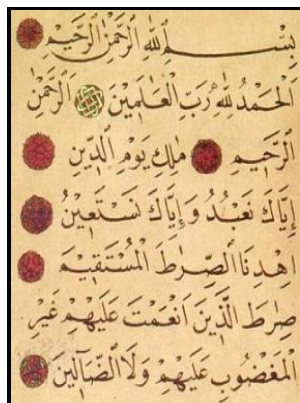 بِسْمِ اللهِ الرَّحْمٰنِ الرَّحِيْمِ
اَلْحَمْدُ لِلّٰهِ رَبِّ الْعَالَمِيْنَ الرَّحْمٰنِ
الرَّحِيْمِ مٰلِكِ يَوْمِ الدِّيْنِ
اِيَّاكَ نَعْبُدُ وَ اِيَّاكَ نَسْتَعِيْنُ
اِهْدِنَا الصِّرَاطَ الْمُسْتَقِيْمَ
صِرَاطَ الَّذِيْنَ اَنْعَمْتَ عَلَيْهِمْ غَيْرِ
الْمَغْضُوبِ عَلَيْهِمْ وَلَا الضَّآلِّيْنَ